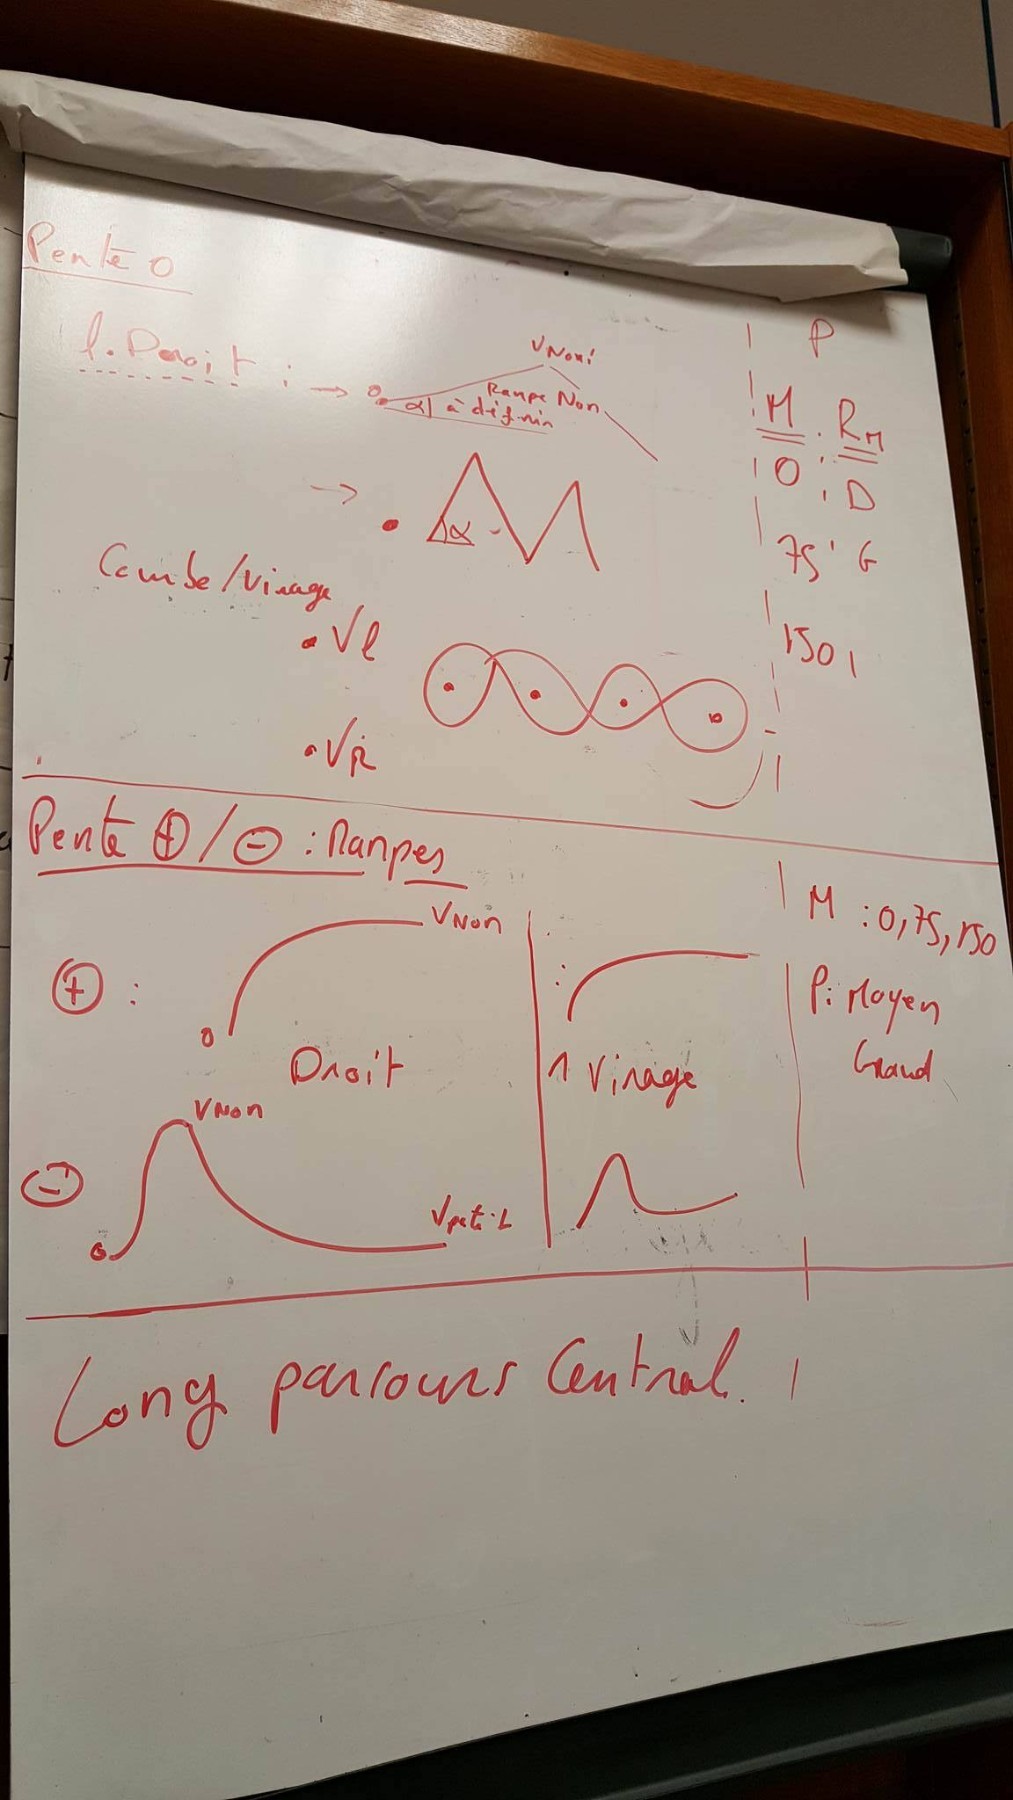 Pente 0
l. Droit : →
VNom
Rampe Nom
α à définir
→ α
Courbe/Virage
• Vl
• VR
P
M : RM
0 : D
75 G
150
Pente ⊕/⊖ : Rampes
⊕ :
VNom
0
Droit
1 Virage
M : 0, 75, 150
P: Moyen
Grand
⊖
VNom
0
Vpetit
Long parcours Central.